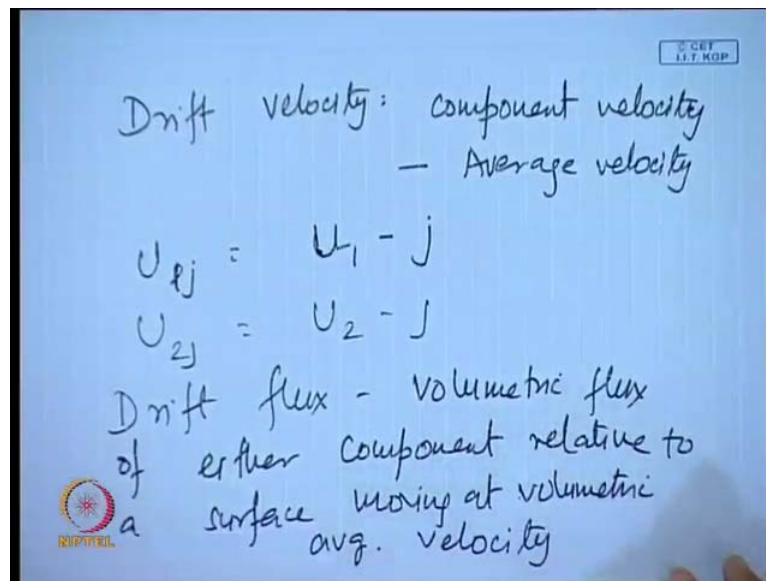 © CET
I.I.T. KGP
Drift velocity: component velocity
— Average velocity
U₁j = U₁ - j
U₂j = U₂ - j
Drift flux - volumetric flux
of either component relative to
a surface moving at volumetric
avg. velocity
NPTEL